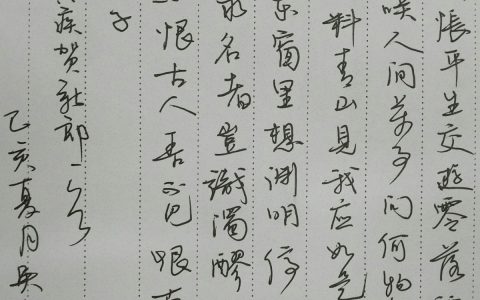 怅平生交遊零落
咲人间万事问何物
料青山见我应如是
东窗里想渊明停
名者岂识浊醪
恨古人吾不见恨古
子
疾贺新郎一首
乙亥夏月吴